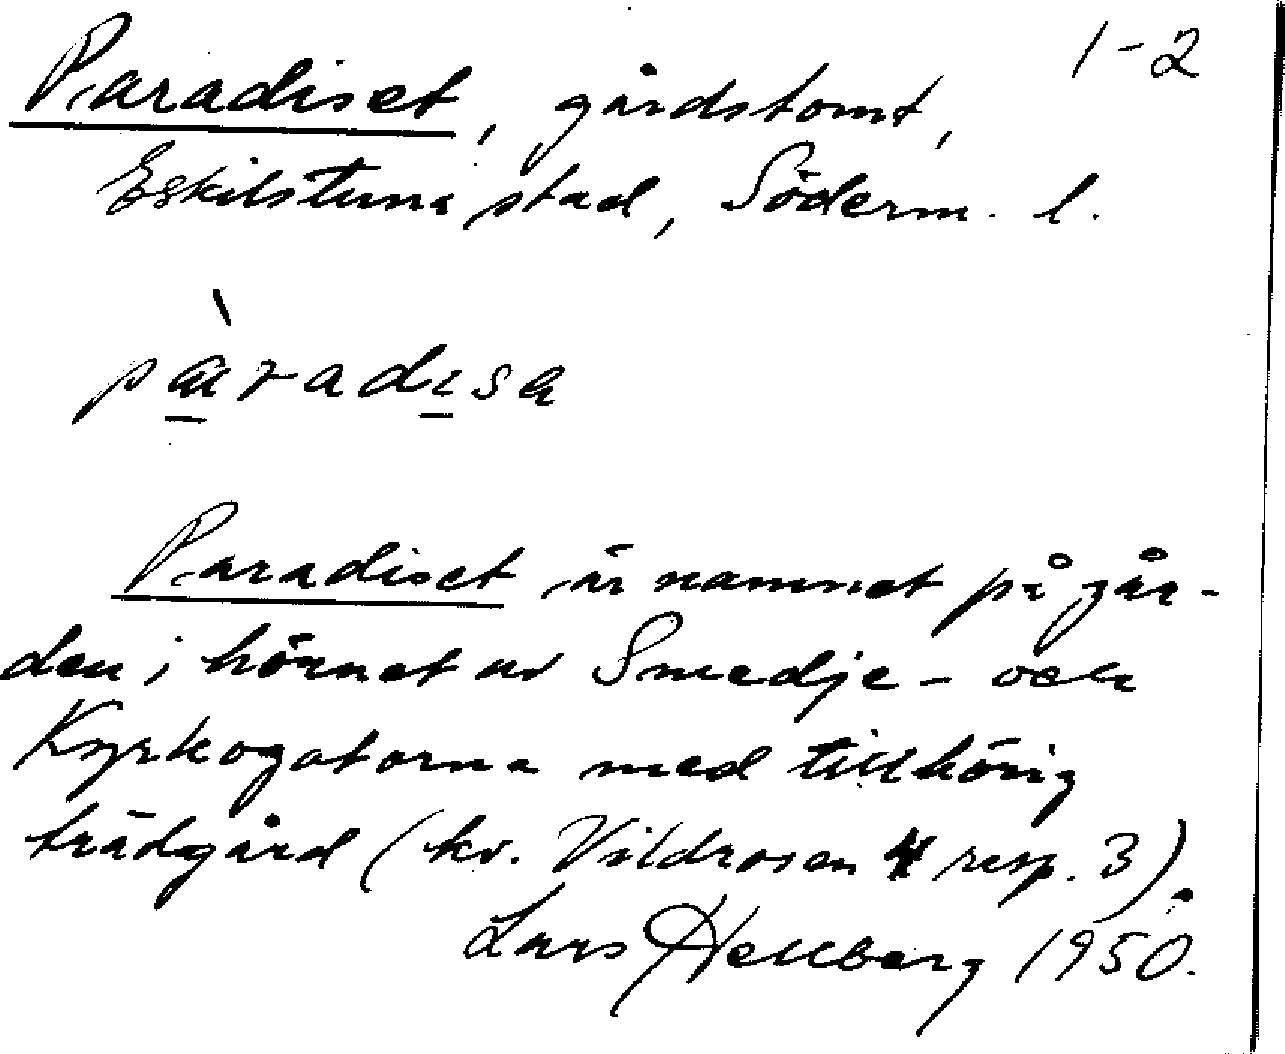 1-2
Paradiset, gårdstomt,
Eskilstuna stad, Söderm. l.
pàradisa
Paradiset är namnet på går-
den i hörnet av Smedje- och
Kyrkogatorna med tillhörig
trädgård (kv. Vildrosen 4 resp. 3).
Lars Hellberg 1950.